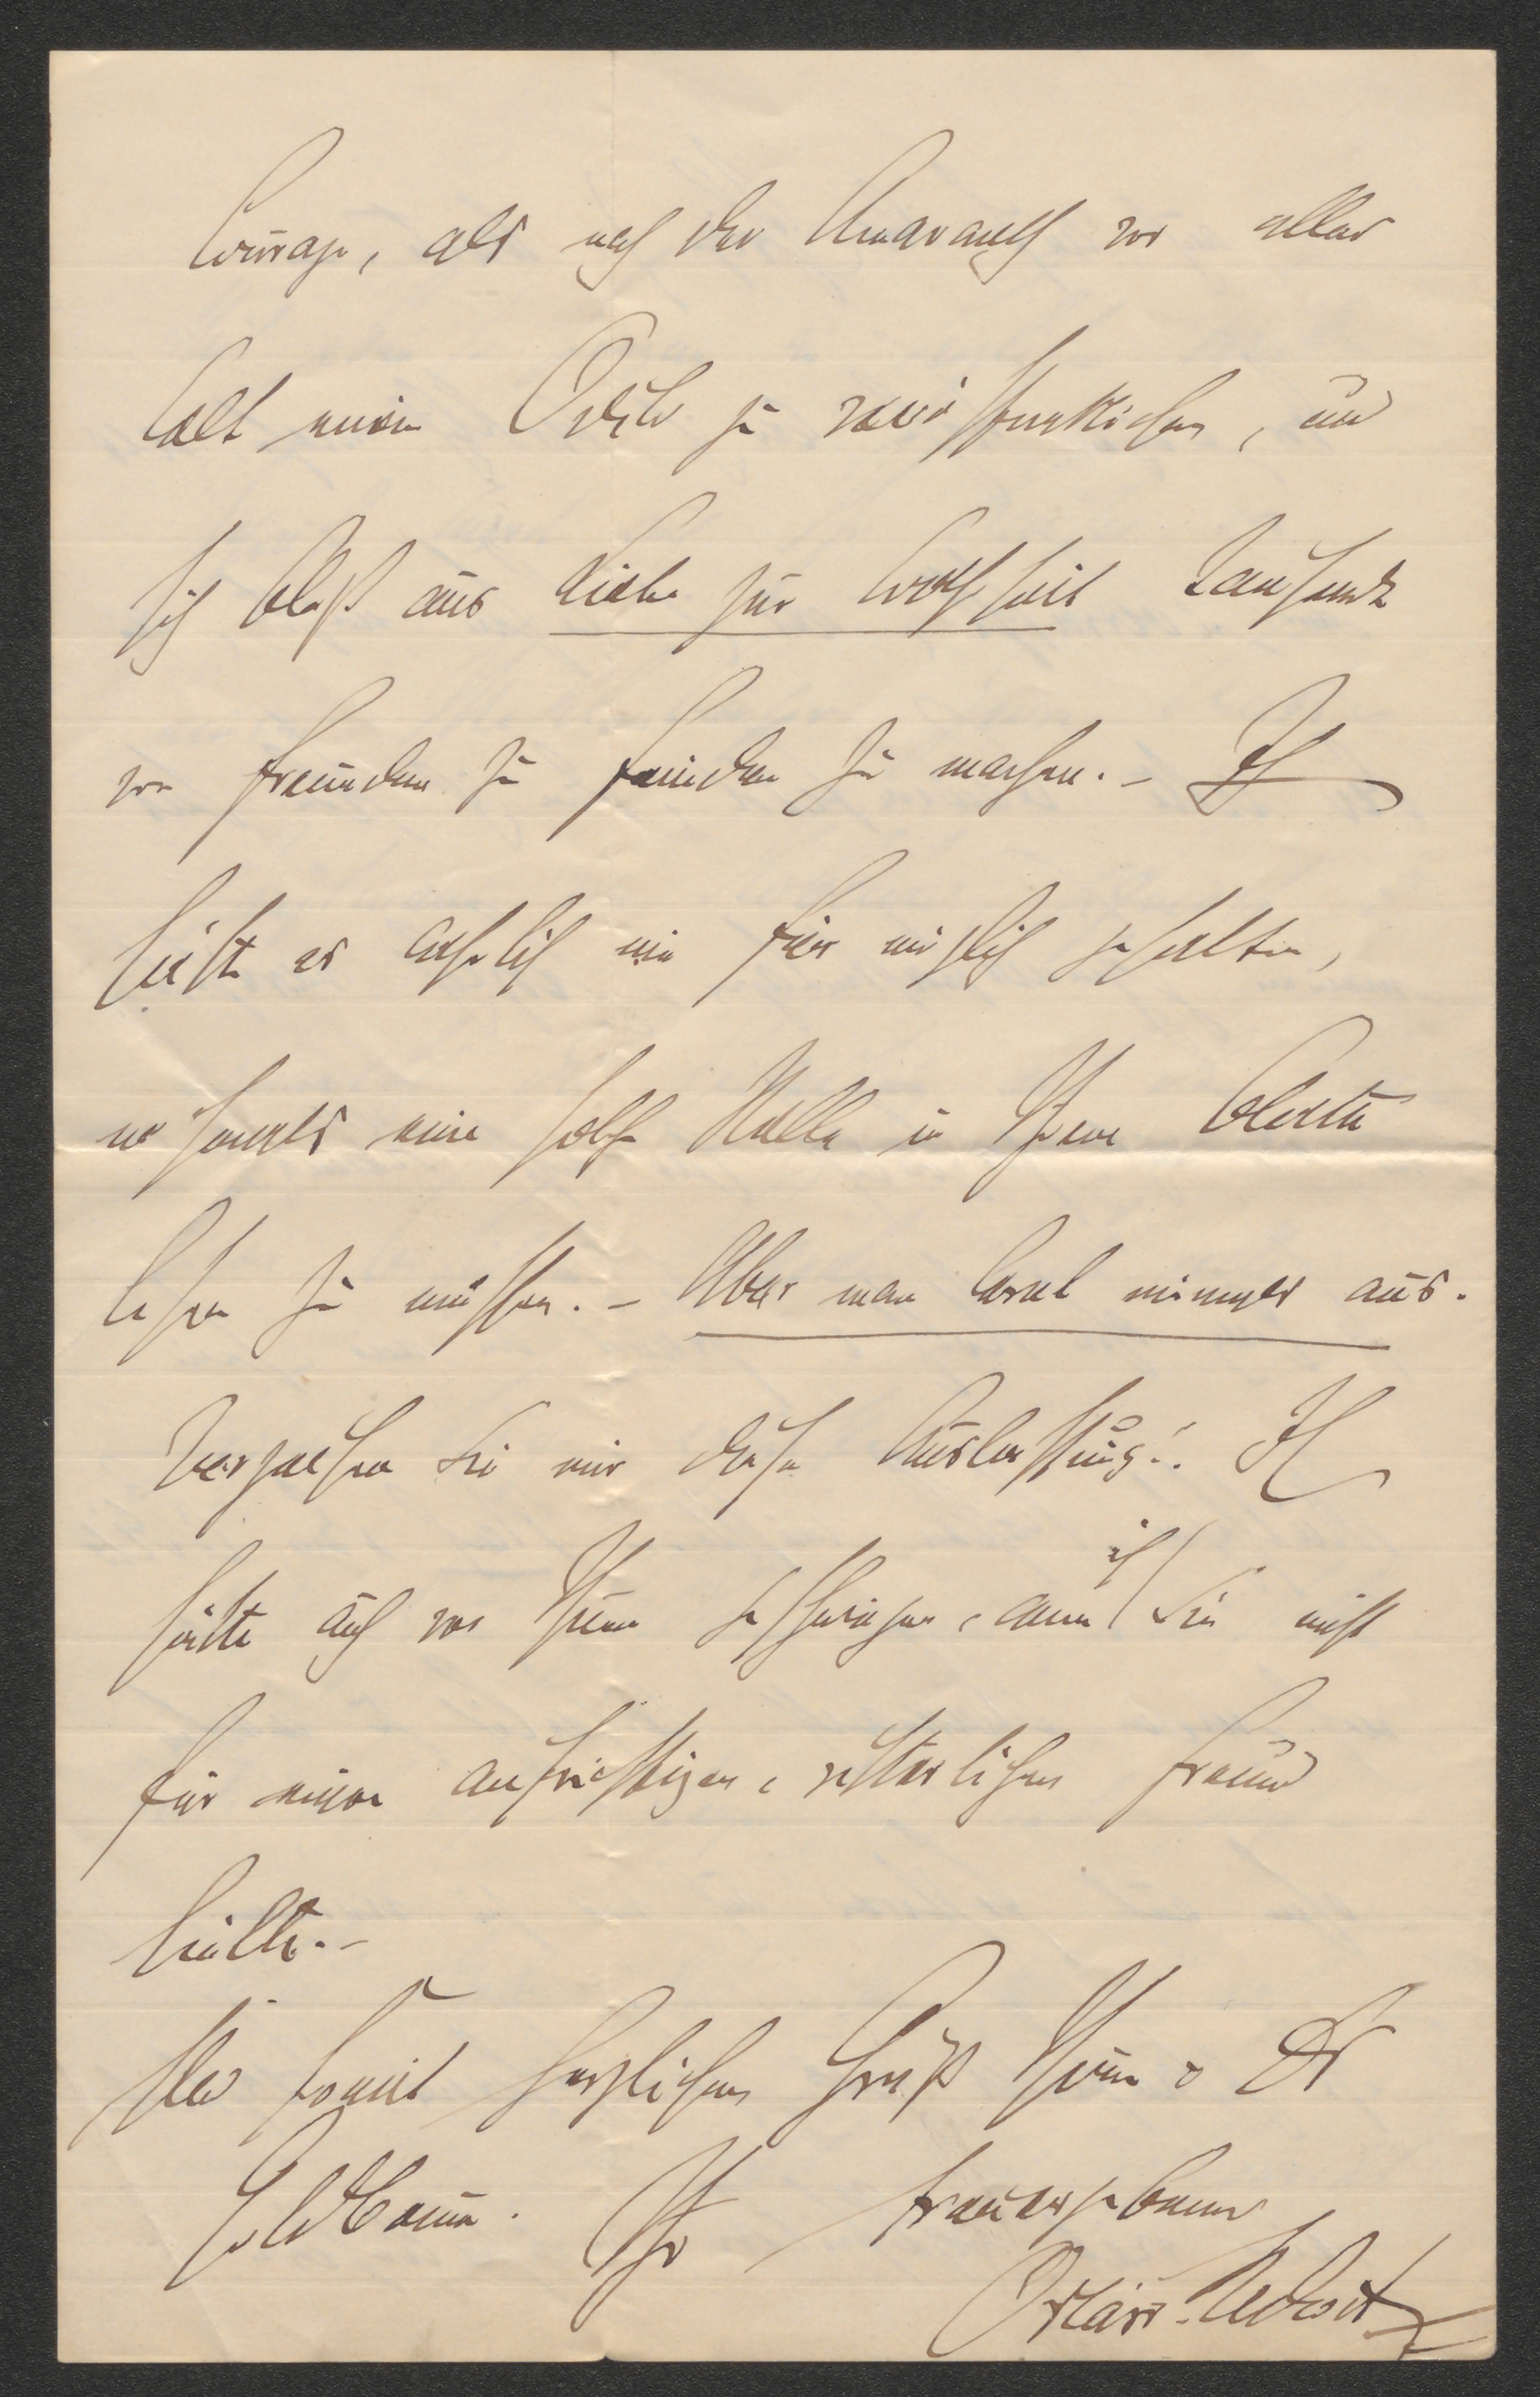 Courage, als nach der Unarauth vor aller
Welt einen Orden zu, und
sich bloß aus Liebe zur Wahrheit Tausende
von Freunden zu Feinden zu machen. – Ich
hätte es wahrlich nie für möglich gehalten,
jemals eine solche Stelle in Ihrem Blatte
lesen zu müssen. – Aber man lernt nimmer aus.
Verzeihen Sie mir diese Auslassung!. Ich
hätte auch vor Ihnen geschwiegen, wenn ich Sie nicht
für einen aufrichtigen, väterlichen Freund
hielte. –
Also somit herzlichen Gruß Ihnen & Dr
Goldbaum. Ihr treuergebener
Oskar